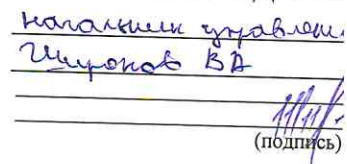 начальник управлен.
Широков ВА
(подпись)